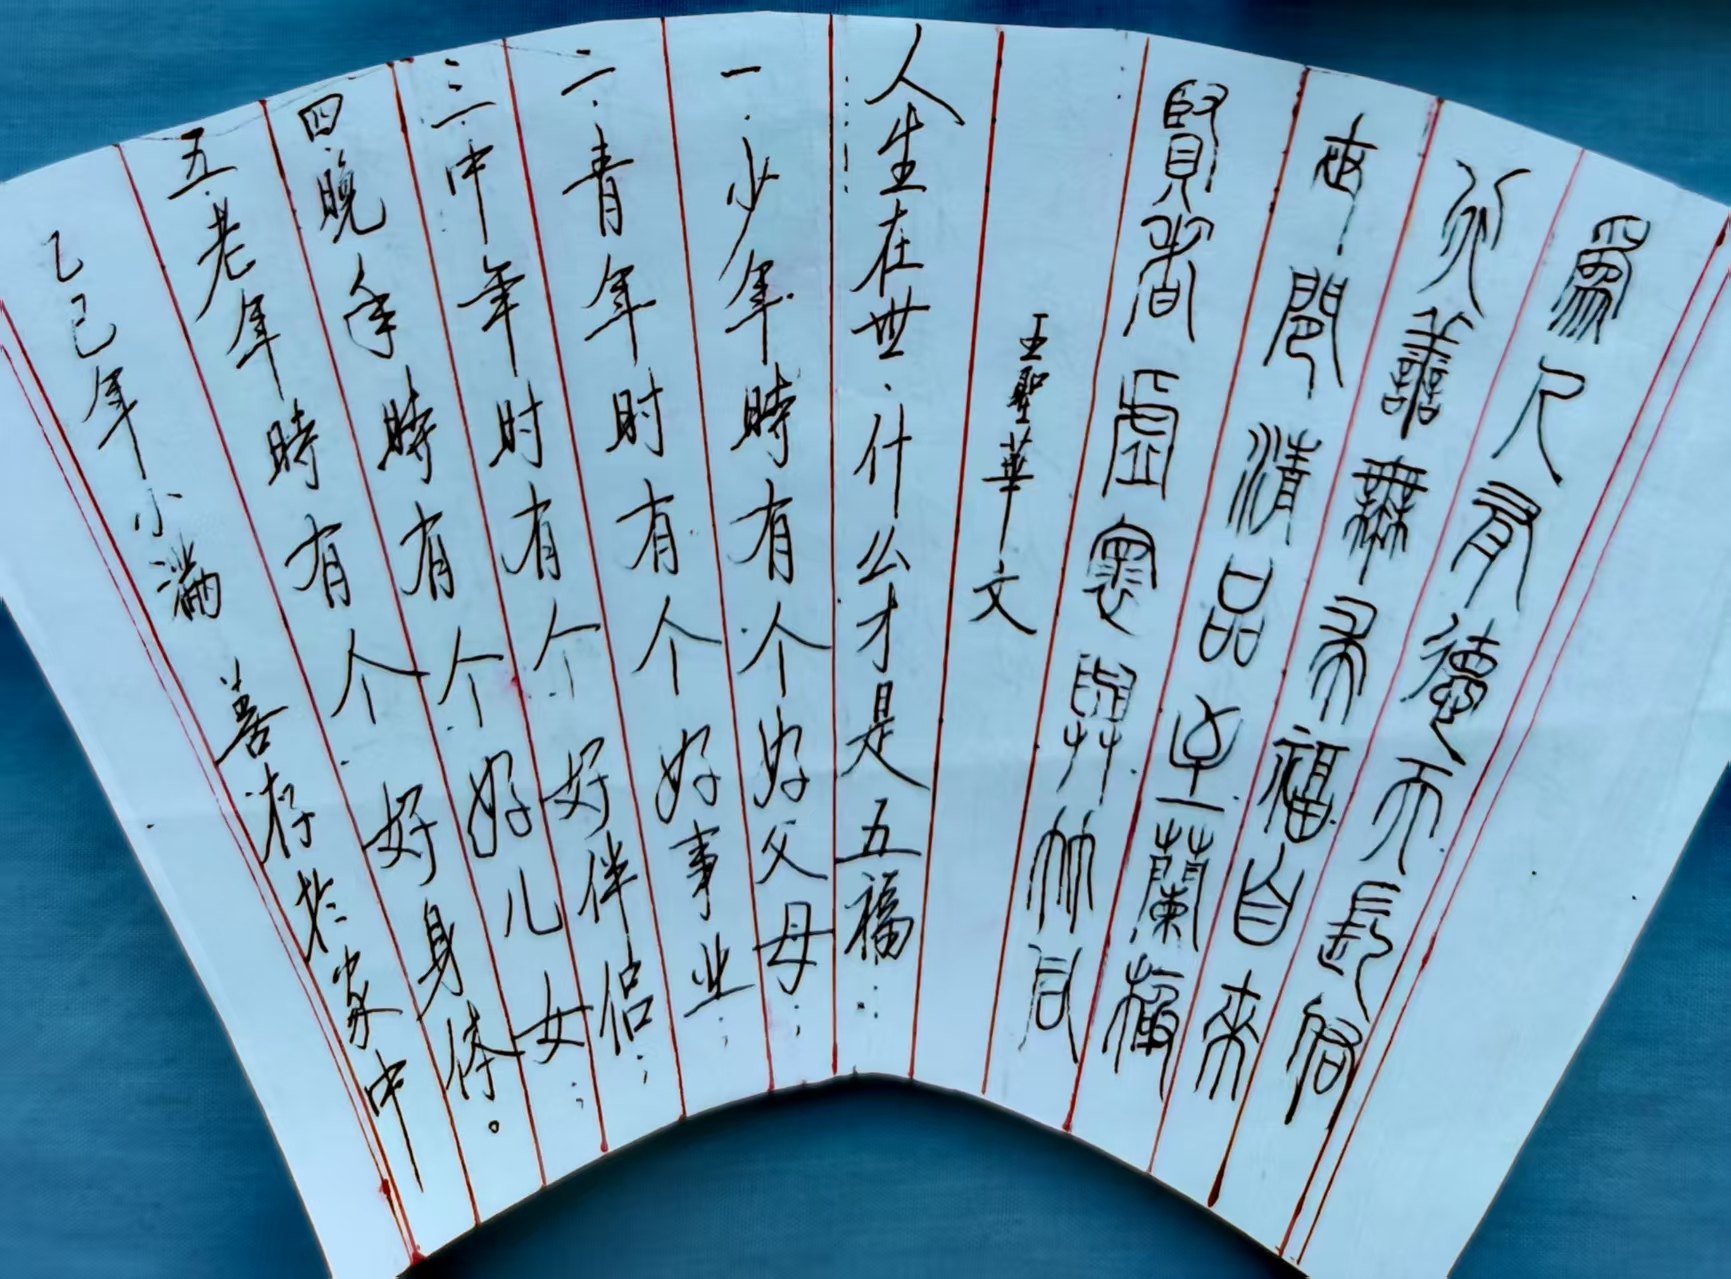 爲人有德天長佑
行善無求福自來
世間清品至蘭極
賢者虛懷與竹同
王聖華文
人生在世、什么才是五福:
一.少年時有个好父母;
二.青年时有个好事业;
三.中年时有个好伴侣;
四.晚年時有个好儿女;
五.老年時有个好身体。
乙巳年小滿 善存於家中